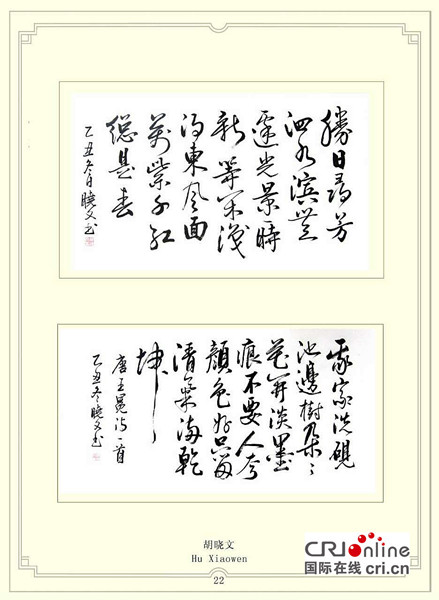 勝日尋芳
泗水滨無
邊光景一時
新等闲識
得東风面
萬紫千红
總是春
乙丑冬日曉文书
我家洗硯
池邊樹朵々
花開淡墨
痕不要人夸
顏色好只留
清氣滿乾
坤
唐王冕诗一首
乙丑冬曉文书
胡晓文
Hu Xiaowen
22
CRIonline
国际在线 cri.cn